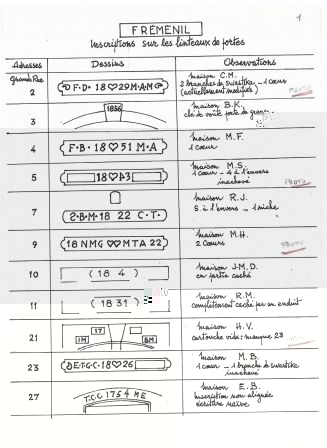 1
FRÉMÉNIL
Inscriptions sur les linteaux de portes
Adresses Dessins Observations
Grande Rue
2 D·F·D· 18 ♡ 29·M·A·M·G maison C.M.
2 branches de swastika - 1 cœur
(actuellement modifiés)
PHOTO
3 1856 maison B.K.
clé de voûte porte de
4 F·B· 18 ♡ 51 M·A maison M.F.
1 cœur
5 18 ♡ maison M.S.
1 cœur - 4 à l'envers
inachevé
PHOTO
7 S·B·M· 18 22 C·T· maison R.J.
S. à l'envers - 1 niche
9 18 NMG ♡♡ MTA 22 maison M.H.
2 cœurs
PHOTO
10 (18 4 ) maison J.M.D.
en partie caché
11 (18 31) maison R.M.
complètement caché par un enduit
21 IM 17 BM maison H.V.
cartouche vide; manque 23
23 D·E·T·G·C·18 ♡ 26 maison M.B.
1 cœur - 1 branche de swastika
inachevé
27 T.C.C 1754 ME maison E.B.
inscription non alignée
écriture naïve